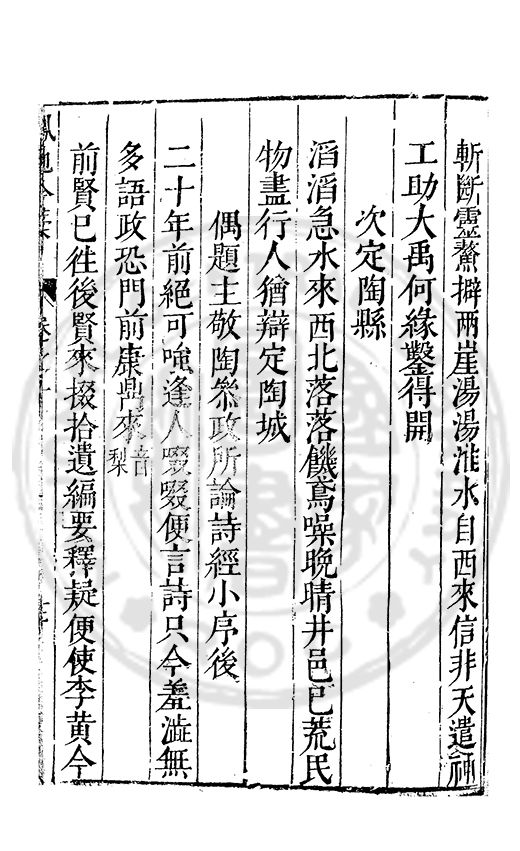 斬斷靈鰲擗兩崖湯湯淮水自西來信非天遣神
工助大禹何緣鑿得開
次定陶縣
滔滔急水來西北落落饑鳶噪晩晴井邑已荒民
物盡行人猶辯定陶城
偶題主敬陶叅政所論詩經小序後
二十年前絕可咍逢人啜啜便言詩只今羞澁無
多語政恐門前康鼎來音梨
前賢已徃後賢來掇拾遺編要釋疑便使李黄今